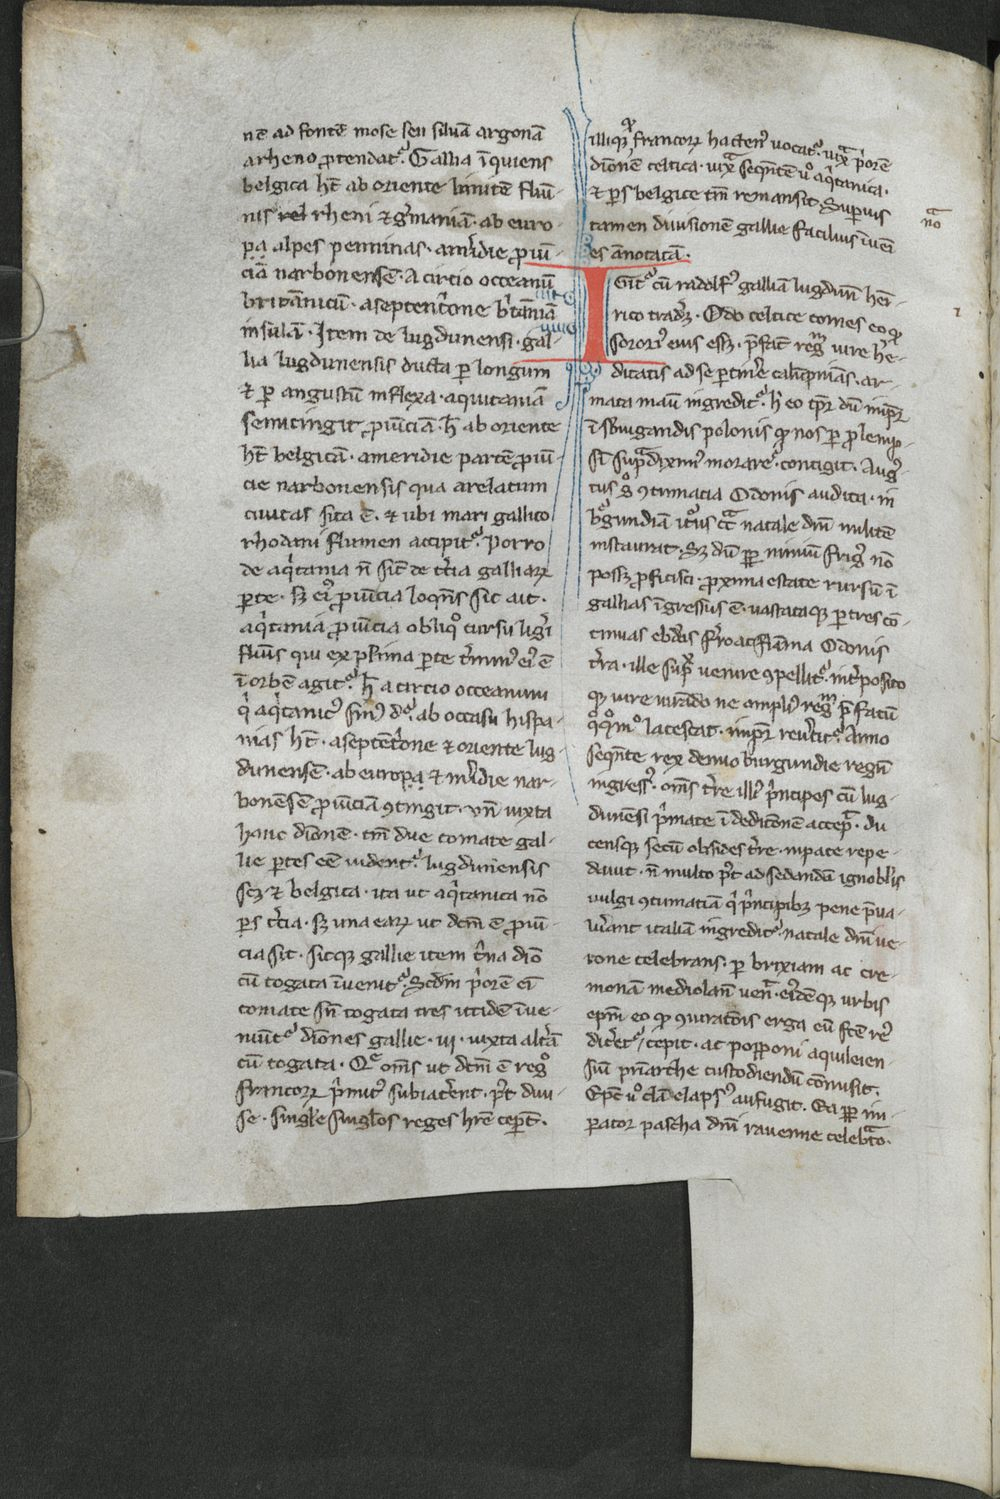 nē ad fontē mose seu siluā argonā
a rheno ꝓtendatᷣ. Gallia īquiens
belgica hēt ab oriente limitē flum̄-
nis rel rheni ⁊ gͥmaniā. ab euro
pa alpes penninas. a mͥidie ꝓuī-
ciā narbonensē. A circio occeanū
britānnicū. a septentͥone bͥtāniā
insulā. Item de lugdunensi. gal-
lia lugdunensis ducta ꝑ longum
⁊ ꝑ angustū inflexa. aquitaniā
semicingit ꝓuīciā. h̄ ab oriente
hēt belgicā. a meridie partē ꝓuī-
cie narbonensis qua arelatum
ciuitas sita ē. ⁊ ubi mari gallico
rhodani flumen accipitᷣ. Porro
de aqͥtania n̄ sic̄ de tͨia galliaꝝ
ꝑte. sꝫ eiꝰ ꝓuīcia loqn̄s sic ait.
aqͥtania ꝓuīcia obliqͦ cursu ligͥi
fluuiͥs qui ex plͥima ꝑte tͥminꝰ eiꝰ ē
ī orbē agitᷣ. h̄ a circio occeanum
qͥ aqͥtanicꝰ sinꝰ dͬ. ab occasu hispa-
nias hēt. a septētͥone ⁊ oriente lug-
dunensē. ab europa ⁊ mͥidie nar-
bonēsē ꝓuīciā ꝯtingit. vn̄ iuxta
hanc diōnē. tm̄ due comate gal-
lie ꝑtes eē uidentᷣ. lugdunensis
scꝫ ⁊ belgica. ita ut aqͥtanica nō
ꝑs tͨia. sꝫ una eaꝝ ut dcm̄ ē ꝓuī-
cia sit. sicqꝫ gallie item tͥna diō
cū togata īuenitᷣ. Scd̄m pͥorē ei
comate sn̄ togata tres itidē īue-
niūtᷣ diōnes gallie. iii. iuxta altͥā
cū togata. Qͤ om̄s ut dcm̄ ē regͦ
francoꝝ pͥmitꝰ subiacͥent. pͦt diui-
se. singl̄e singl̄os reges hr̄e ceꝑt.
illiqꝫ francoꝝ hactenꝰ uocatᷣ. iuxͣ pͥorē
diōnē celtica. iuxͣ seqn̄tē uͦ aqͥtanica.
⁊ ꝑs belgice tm̄ remansit. Suꝑius
tamen diuisionē gallie facilius īuēi
es ānotatā.
nͣo
Igitᷣ cū radolfꝰ galliā lugdun̄ hen̄-
rico tradͥꝫ. Odo celtice comes eo ꝙ
sororiꝰ eius essꝫ. p̄fatͫ regͫ iure he-
ditatis ad se ꝑtinͥe calūpnians. ar-
mata manū ingreditᷣ. h̄ eo tp̄r dū imꝑr̄
ī sbiugandis polonis ꝙ nos ꝑ ꝓlemp-
sī supͣ diximꝰ morareᷣ. contigit. Augꝰ-
tus gͦ ꝯtumacia Odonis audita. in
bͬgundiā itͦus cͨͣ natale dn̄i militē
instaurat. Sꝫ dū ꝓpͥ nimiū frigꝰ nō
possꝫ ꝓficisci. ꝓxima estate rursū ī
gallias īgressus ē. uastataqꝫ ꝑ tres cō-
tinuas ebdōs frͦ ac flāma Odonis
tͥra. ille supꝑ uenire ꝯpellitᷣ. intͥposito
qꝫ iure iurādo ne ampliꝰ regͫ p̄fatū
qͦqͦmͦ lacescat. imꝑr̄ reuͥtitᷣ. Anno
seqn̄te rex denuo burgundie regnū
ingressꝰ. om̄s tͥre illiꝰ pͥncipes cū lug-
dunēsi pͥmate ī dedicōnē accepͣ. du
censqꝫ secū obsides tͥre. in pace repe-
dauit. n̄ multo pͦt ad sedandā ignobl̄is
uulgi ꝯtumatiā qͥ pͥncipibꝫ pene p̄ua-
luͥant italiā ingreditᷣ. natale dn̄i ue-
rone celebrans. ꝑ brixiam ac cre-
monā mediolan̄ uenͥ. eidēqꝫ urbis
epm̄ eo ꝙ ꝯiuratōis erga eū fcē reꝰ
dicͥetᷣ. cepit. ac popponi aquileien-
sīu pr̄iarche custodiendū cōmisit.
Ep̄c uͦ clā elapsꝰ aufugit. Ea ꝓpͥ im-
ꝑator pascha dn̄i rauenne celebͣto.